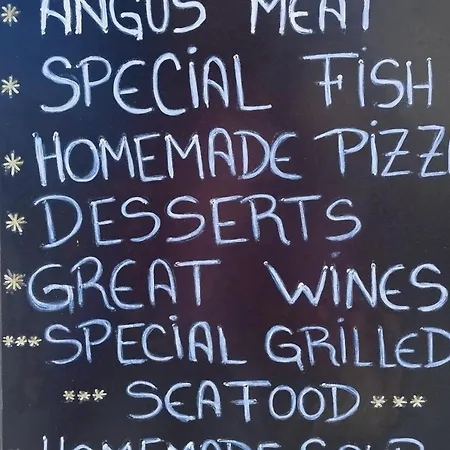 * ANGUS MEAT
* SPECIAL FISH
* HOMEMADE PIZZ
* DESSERTS
* GREAT WINES
*** SPECIAL GRILLED
*** SEAFOOD ***
HOMEMADE SOUP